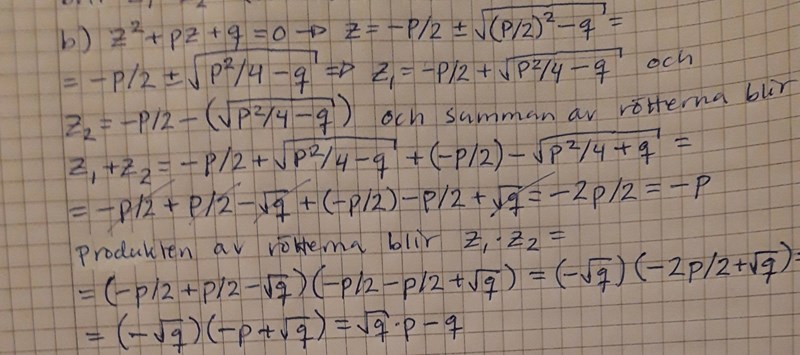 b) z² + pz + q = 0 → z = -p/2 ± √((p/2)² - q) =
= -p/2 ± √(p²/4 - q) ⇒ z₁ = -p/2 + √(p²/4 - q) och
z₂ = -p/2 - (√(p²/4 - q)) och summan av rötterna blir
z₁ + z₂ = -p/2 + √(p²/4 - q) + (-p/2) - √(p²/4 + q) =
= -p/2 + p/2 - √q + (-p/2) - p/2 + √q = -2p/2 = -p
produkten av rötterna blir z₁ · z₂ =
= (-p/2 + p/2 - √q)(-p/2 - p/2 + √q) = (-√q)(-2p/2 + √q) =
= (-√q)(-p + √q) = √q · p - q